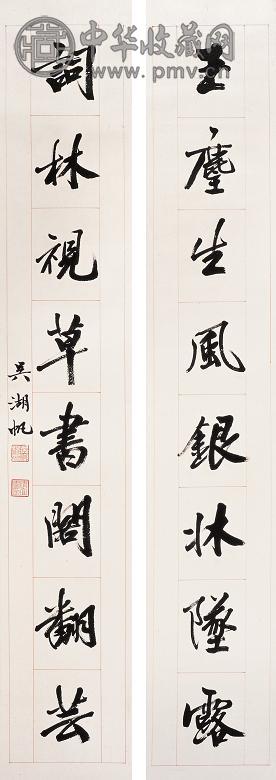 中华收藏网
www.pmv.cn
玉麈生風銀牀墜露
詞林視草書閣翻芸
吳湖帆